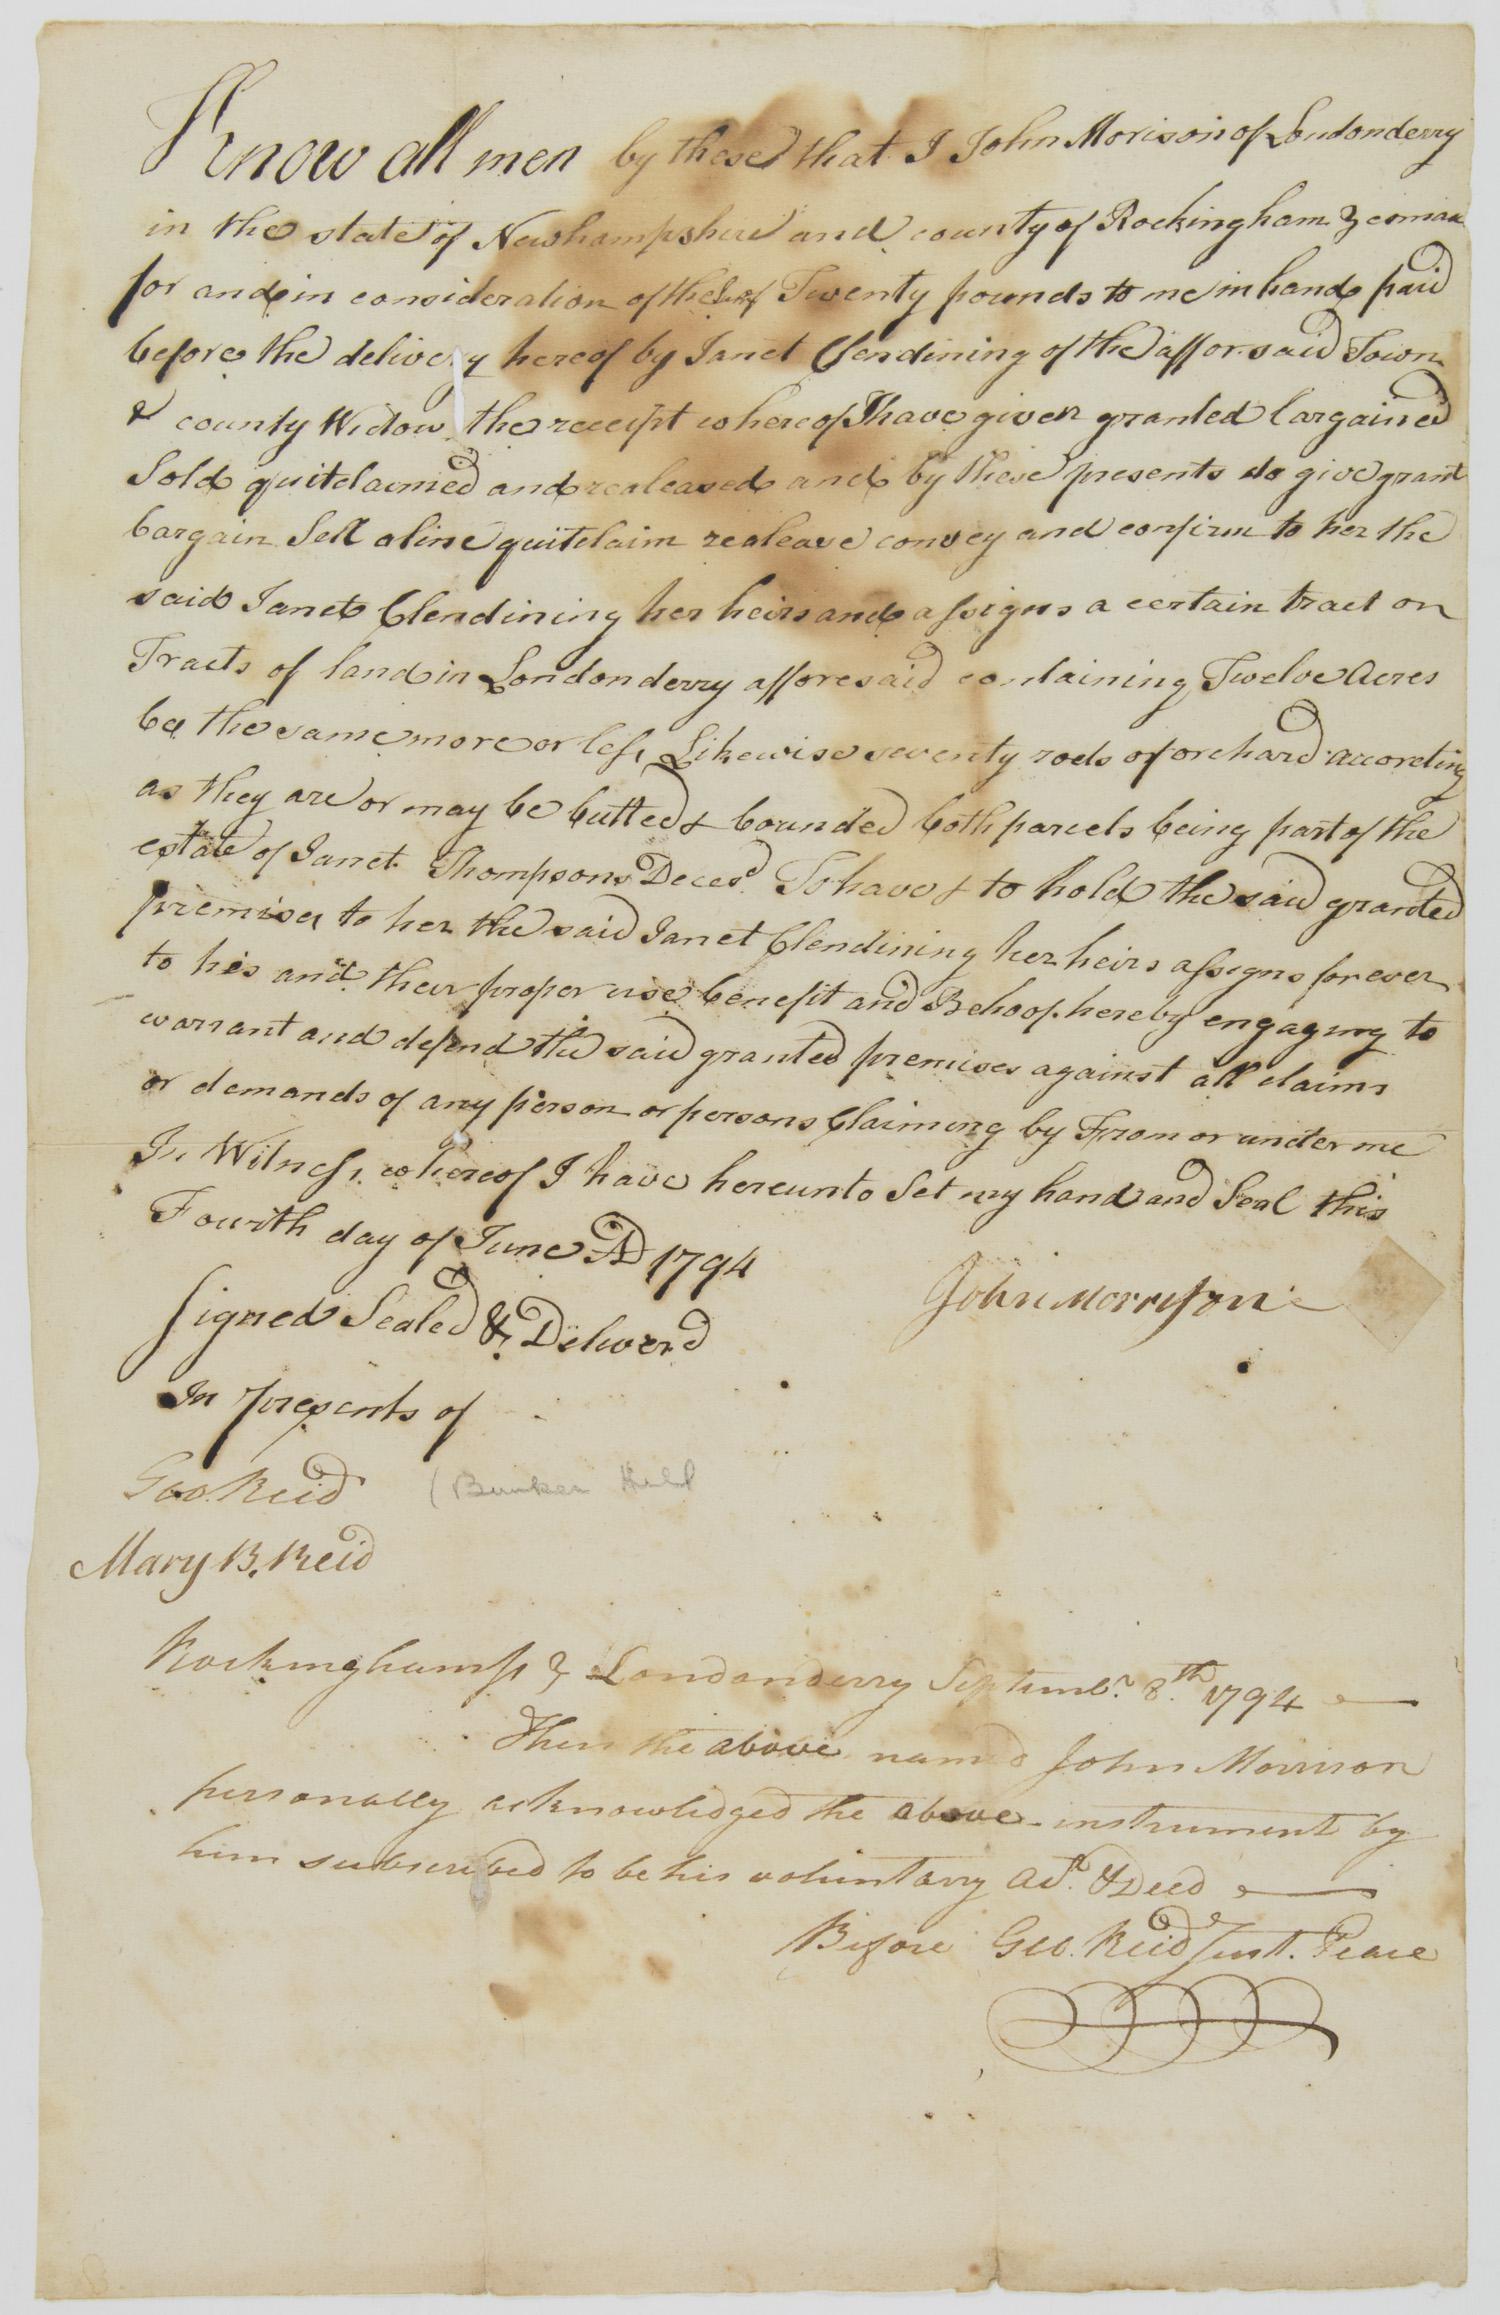 Know all men by these that I John Morison of Londonderry
in the state of Newhampshire and county of Rockingham yeoman
for and in consideration of the Sum of Twenty pounds to me in hand paid
before the delivery hereof by Janet Clendining of the afforsaid Town
& county Widow the receipt whereof I have given granted bargained
Sold quitclaimed and realeased and by these presents do give grant
bargain Sell aline quitclaim realease convey and confirm to her the
said Janet Clendining her heirs and assigns a certain tract or
Tracts of land in Londonderry afforesaid containing Twelve Acres
be the same more or less Likewise seventy rods of orchard according
as they are or may be butted & bounded both parcels being part of the
estate of Janet Thompsons Decesd. To have & to hold the said granted
premises to her the said Janet Clendining her heirs assigns for ever
to his and their proper use benefit and Behoof hereby engaging to
warrant and defend the said granted premises against all claims
or demands of any person or persons Claiming by From or under me
In Witness whereof I have hereunto Set my hand and Seal this
Fourth day of June AD 1794
John Morrison
Signed Sealed & Deliverd
In presents of
Geo. Reid (Bunker Hill
Mary B. Reid
Rockingham ss Londonderry Septembr. 8th. 1794
Then the above named John Morrison
personally acknowledged the above instrument by
him subscribed to be his voluntary Act. & Deed
Before Geo. Reid Just. Peace